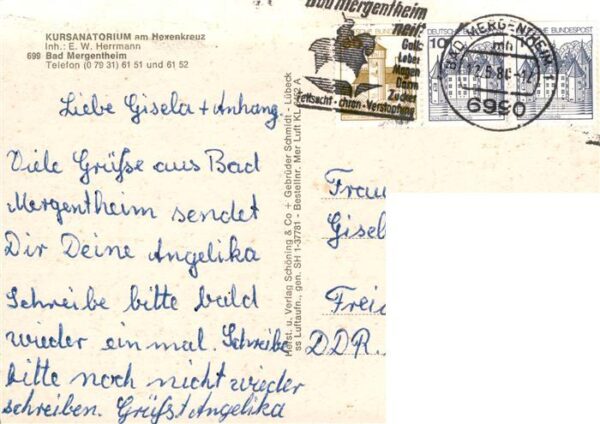 KURSANATORIUM am Hexenkreuz
Inh.: E. W. Herrmann
699 Bad Mergentheim
Telefon (0 79 31) 61 51 und 61 52
Liebe Gisela + Anhang.
Viele Grüße aus Bad
Mergentheim sendet
Dir Deine Angelika
Schreibe bitte bald
wieder ein mal. Schreibe
bitte noch nicht wieder
schreiben. Grüßt Angelika
Herst. u. Verlag Schöning & Co + Gebrüder Schmidt - Lübeck
ss Luftaufn., gen. SH 1-37781 - Bestellnr. Mer Luft KL
Bad Mergentheim
heilt
Galle
Leber
Magen
Darm
Zucker
Fettsucht - chron. Verstopfung
BAD MERGENTHEIM 1
mh
12.5.86-12
6990
10
BUNDESPOST
Frau
Gisel
Frei
DDR.